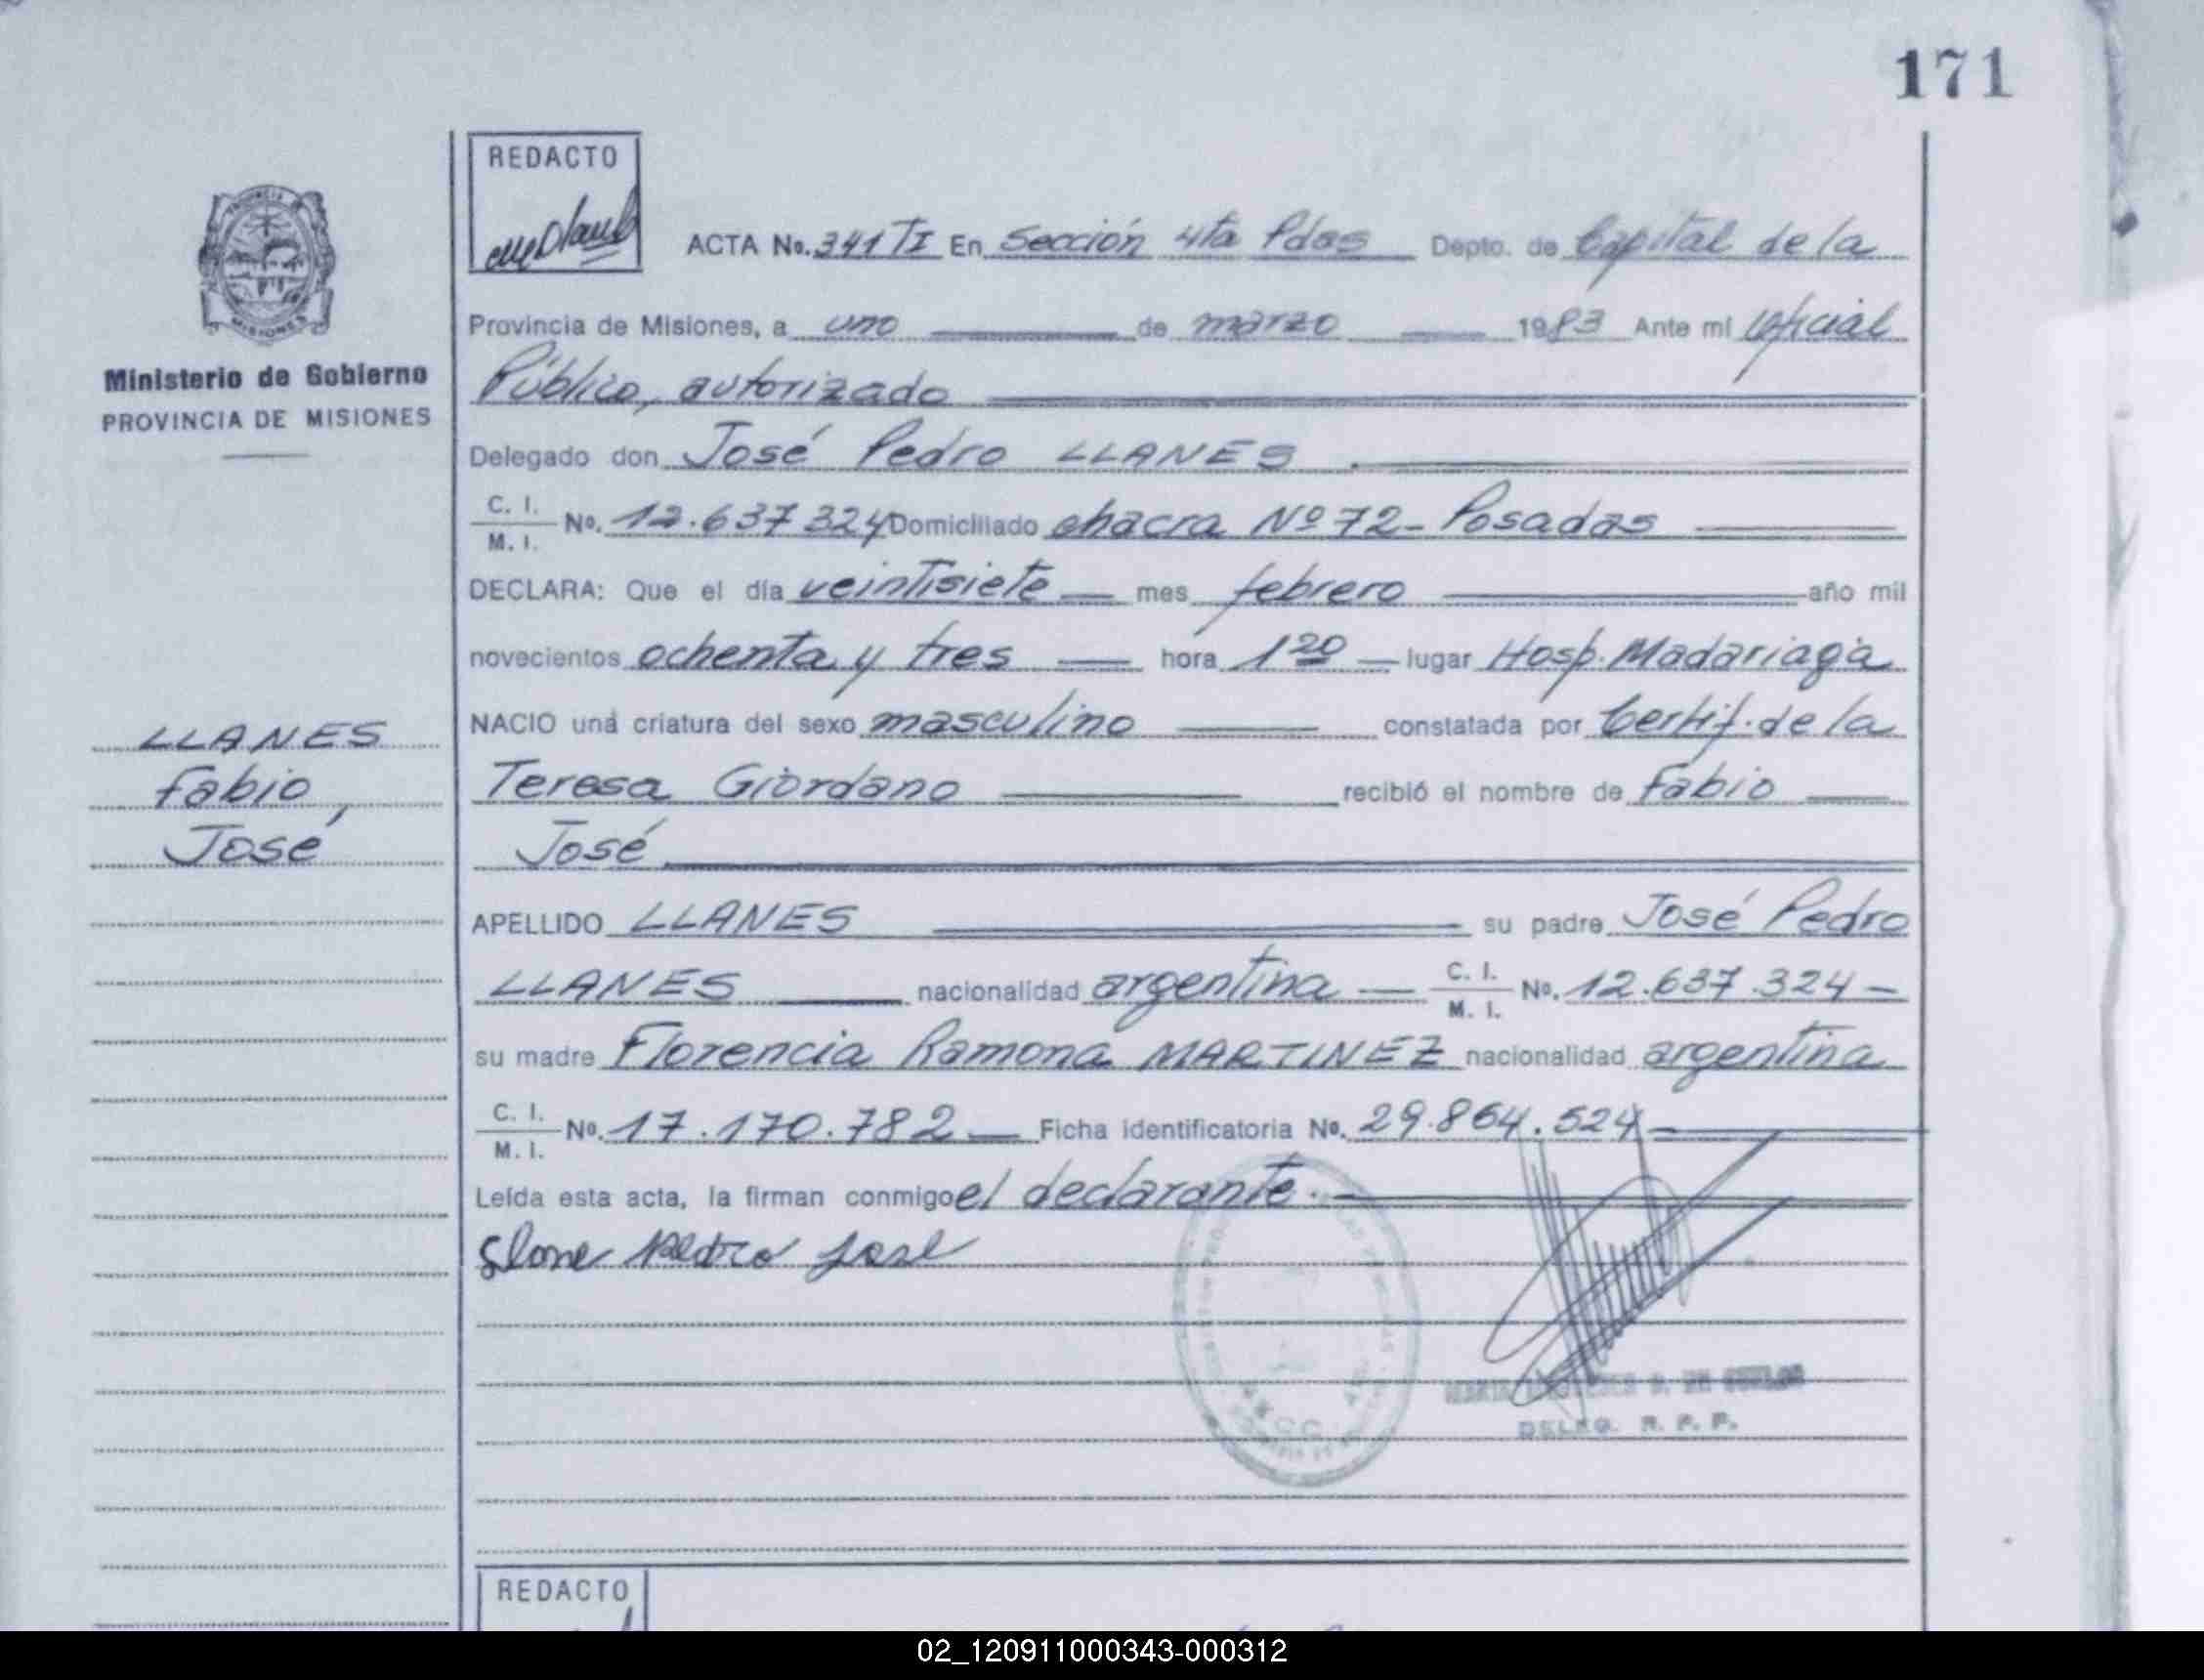 171
REDACTO
ACTA No. 341 TI En Sección 4ta Pdas Depto. de Capital de la
Provincia de Misiones, a uno de marzo 1983 Ante mi Oficial
Público, autorizado
Ministerio de Gobierno
PROVINCIA DE MISIONES
Delegado don José Pedro LLANES
C. I. / M. I. No. 12.637.324 Domiciliado chacra Nº 72 - Posadas
DECLARA: Que el día veintisiete mes febrero año mil
novecientos ochenta y tres hora 1 20 lugar Hosp. Madariaga
LLANES
Fabio,
José
NACIO una criatura del sexo masculino constatada por Certif. de la
Teresa Giordano recibió el nombre de Fabio
José
APELLIDO LLANES su padre José Pedro
LLANES nacionalidad argentina C. I. / M. I. No. 12.637.324 -
su madre Florencia Ramona MARTINEZ nacionalidad argentina
C. I. / M. I. No. 17.170.782 Ficha identificatoria No. 29.864.524
Leída esta acta, la firman conmigo el declarante.
Pedro José
DELEG. R. P. P.
REDACTO
02_120911000343-000312